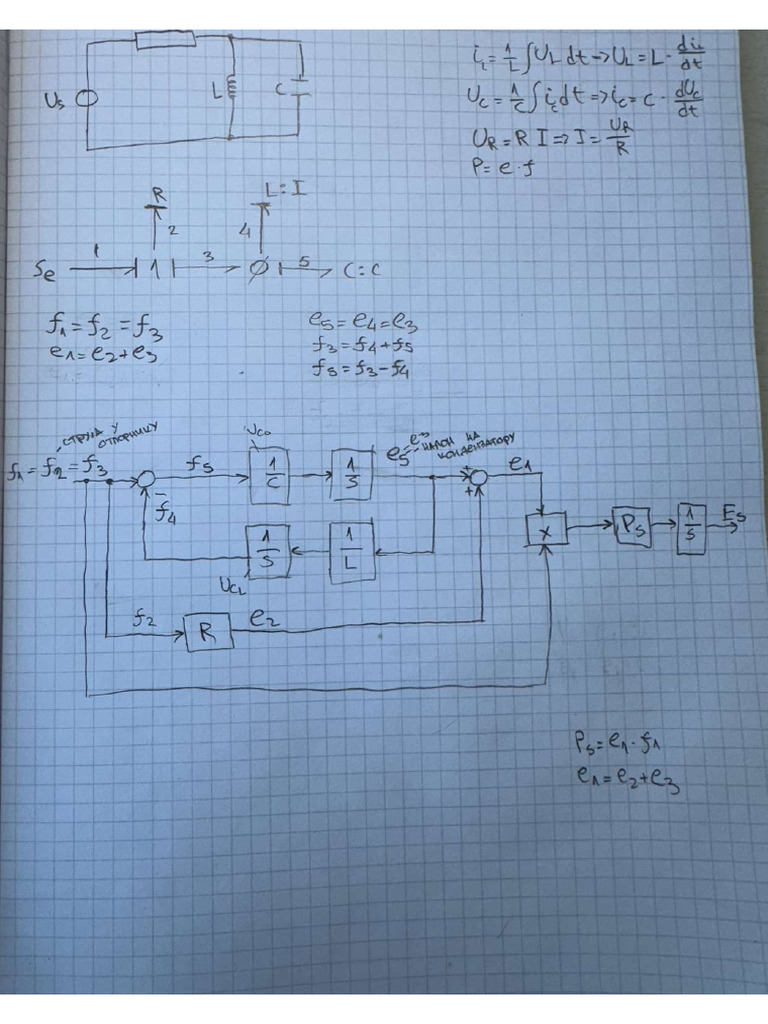 i_L = 1/L ∫ U_L dt → U_L = L · di_L/dt
U_C = 1/C ∫ i_C dt ⇒ i_C = C · dU_C/dt
U_R = R I ⇒ I = U_R/R
P = e · f
U_S
L
C
R
L : I
1
2
3
4
5
Se
1
0
C : C
f1 = f2 = f3
e1 = e2 + e3
e5 = e4 = e3
f3 = f4 + f5
f5 = f3 - f4
- струја у
отпорнику
f1 = f2 = f3
-
f4
f5
U_C0
1/C
1/S
e5 = e3
- напон на
кондензатору
+
+
e1
1/S
U_CL
1/L
x
P_S
1/S
E_S
f2
R
e2
P_S = e1 · f1
e1 = e2 + e3